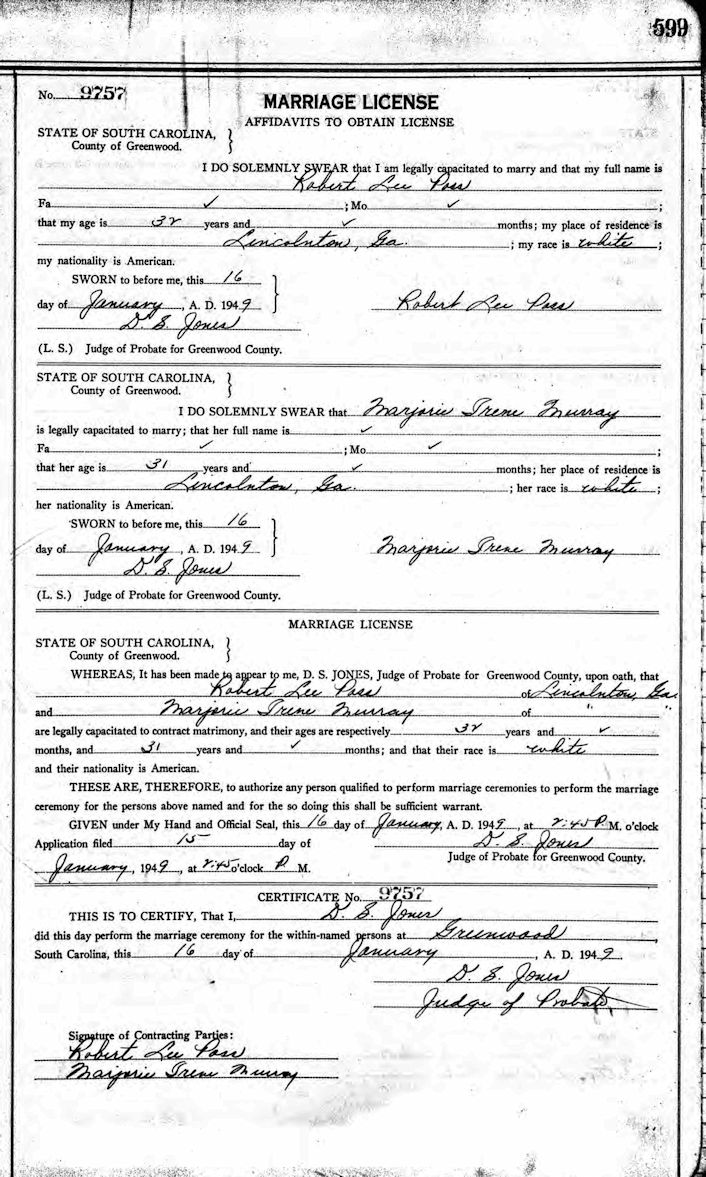 599
No. 9757
MARRIAGE LICENSE
AFFIDAVITS TO OBTAIN LICENSE
STATE OF SOUTH CAROLINA,
County of Greenwood.
I DO SOLEMNLY SWEAR that I am legally capacitated to marry and that my full name is
Robert Lee Poss
Fa ✓ ; Mo ✓ ;
that my age is 32 years and ✓ months; my place of residence is
Lincolnton, Ga. ; my race is white ;
my nationality is American.
SWORN to before me, this 16
day of January, A. D. 1949 Robert Lee Poss
D. S. Jones
(L. S.) Judge of Probate for Greenwood County.
STATE OF SOUTH CAROLINA,
County of Greenwood.
I DO SOLEMNLY SWEAR that Marjorie Irene Murray
is legally capacitated to marry; that her full name is ✓
Fa ✓ ; Mo ✓ ;
that her age is 31 years and ✓ months; her place of residence is
Lincolnton, Ga. ; her race is white ;
her nationality is American.
SWORN to before me, this 16
day of January, A. D. 1949 Marjorie Irene Murray
D. S. Jones
(L. S.) Judge of Probate for Greenwood County.
MARRIAGE LICENSE
STATE OF SOUTH CAROLINA,
County of Greenwood.
WHEREAS, It has been made to appear to me, D. S. JONES, Judge of Probate for Greenwood County, upon oath, that
Robert Lee Poss of Lincolnton, Ga.
and Marjorie Irene Murray of " "
are legally capacitated to contract matrimony, and their ages are respectively 32 years and ✓
months, and 31 years and ✓ months; and that their race is white
and their nationality is American.
THESE ARE, THEREFORE, to authorize any person qualified to perform marriage ceremonies to perform the marriage
ceremony for the persons above named and for the so doing this shall be sufficient warrant.
GIVEN under My Hand and Official Seal, this 16 day of January, A. D. 1949, at 2:45 P. M. o'clock
Application filed 15 day of D. S. Jones
Judge of Probate for Greenwood County.
January, 1949, at 2:45 o'clock P M.
CERTIFICATE No. 9757
THIS IS TO CERTIFY, That I, D. S. Jones
did this day perform the marriage ceremony for the within-named persons at Greenwood,
South Carolina, this 16 day of January, A. D. 1949
D. S. Jones
Judge of Probate
Signature of Contracting Parties:
Robert Lee Poss
Marjorie Irene Murray